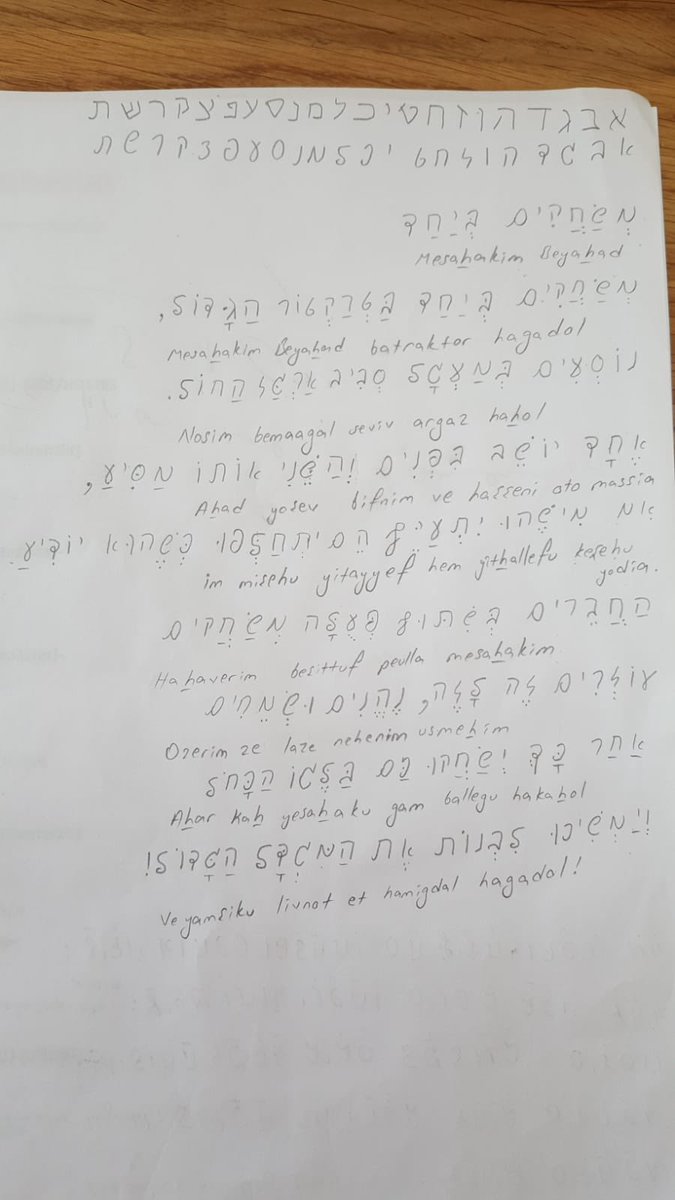 אבגדהוזחטיכלמנסעפצקרשת
אבגדהוזחטיכלמנסעפצקרשת
מְשַׂחֲקִים בְּיַחַד
Mesahakim Beyahad
מְשַׂחֲקִים בְּיַחַד בַּטְרַקְטוֹר הַגָּדוֹל,
Mesahakim Beyahad batraktor hagadol
נוֹסְעִים בְּמַעְגָל סְבִיב אַרְגַז הַחוֹל.
Nosim bemaagal seviv argaz hahol
אֶחָד יוֹשֵׁב בִּפְנִים וְהַשֵּׁנִי אוֹתוֹ מַסִּיעַ,
Ahad yosev bifnim ve hasseni oto massia
אִם מִישֶׁהוּ יִתְעַיֵּיף הֵם יִתְחַלְּפוּ כְּשֶׁהוּא יוֹדִיעַ.
im misehu yitayyef hem yithallefu kesehu
yodia.
הַחֲבֵרִים בְּשִׁתּוּף פְּעֻלָּה מְשַׂחֲקִים
Hahaverim besittuf peulla mesahakim
עוֹזְרִים זֶה לָזֶה, נֶהֱנִים וּשְׂמֵחִים
Ozerim ze laze nehenim usmehim
אַחַר כָּךְ יְשַׂחֲקוּ גַּם בַּלֶּגוֹ הַכָּחֹל
Ahar kah yesahaku gam ballegu hakahol
וְיַמְשִׁיכוּ לִבְנוֹת אֶת הַמִּגְדָּל הַגָּדוֹל!
Ve yamsiku livnot et hamigdal hagadol!